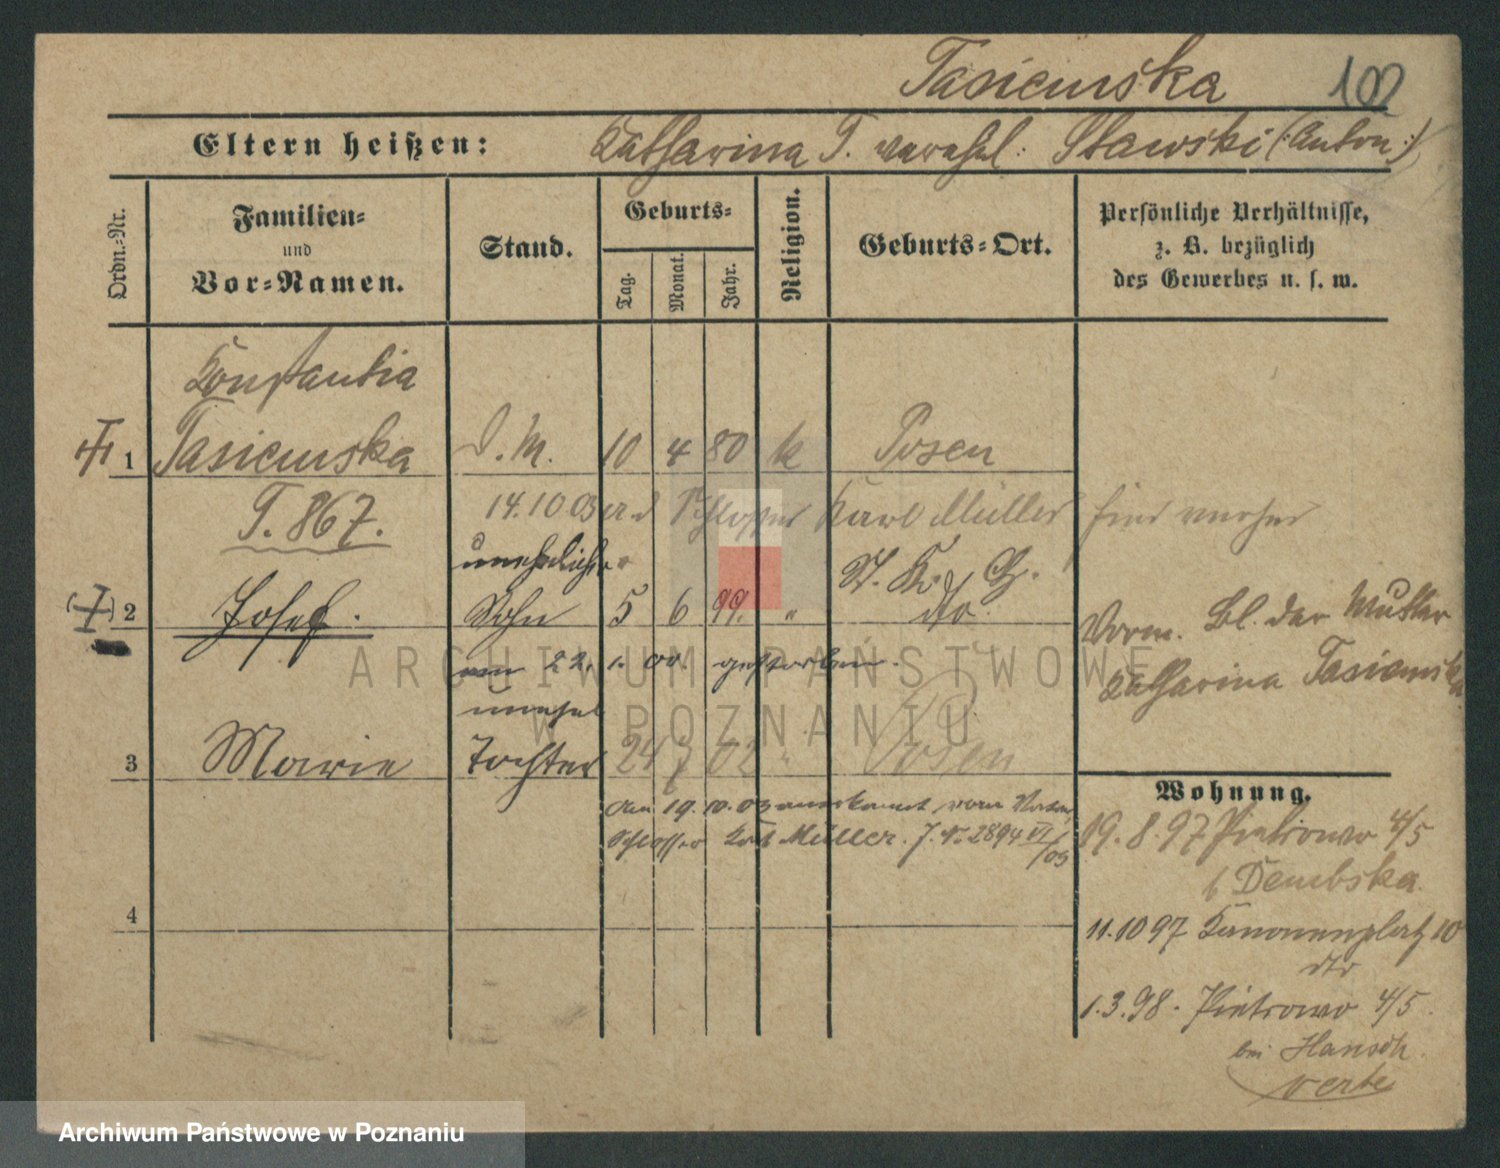 Tasiemska 102
Eltern heißen: Katharina T. vereehel: Stawski (: Anton :)
Ordn.=Nr.
Familien=
und
Vor=Namen.
Stand.
Geburts=
Tag.
Monat.
Jahr.
Religion.
Geburts=Ort.
Persönliche Verhältnisse,
z. B. bezüglich
des Gewerbes u. s. w.
Konstantia
1 Tasiemska d. M. 10 4 80 k Posen
T. 867. 14.10 03 Schlosser Karl Müller
unehelicher
2 Josef. Sohn 5 6 99. " dto
Vorm. Bl. der Mutter
Katharina Tasiemska
am 22. 1. 00. gestorben.
unehel
3 Marie Tochter 24 7 02 " Posen
den 19. 10. 03 anerkannt vom Vater,
Schlosser Karl Müller. J. N. 2894 VI/03
4
Wohnung.
19. 8. 97 Pietrowo 4/5
b Dembska
11. 10 97 Kanonenplatz 10
dto
1. 3. 98. Pietrowo 4/5.
bei Hansch.
ARCHIWUM PAŃSTWOWE
W POZNANIU
Archiwum Państwowe w Poznaniu